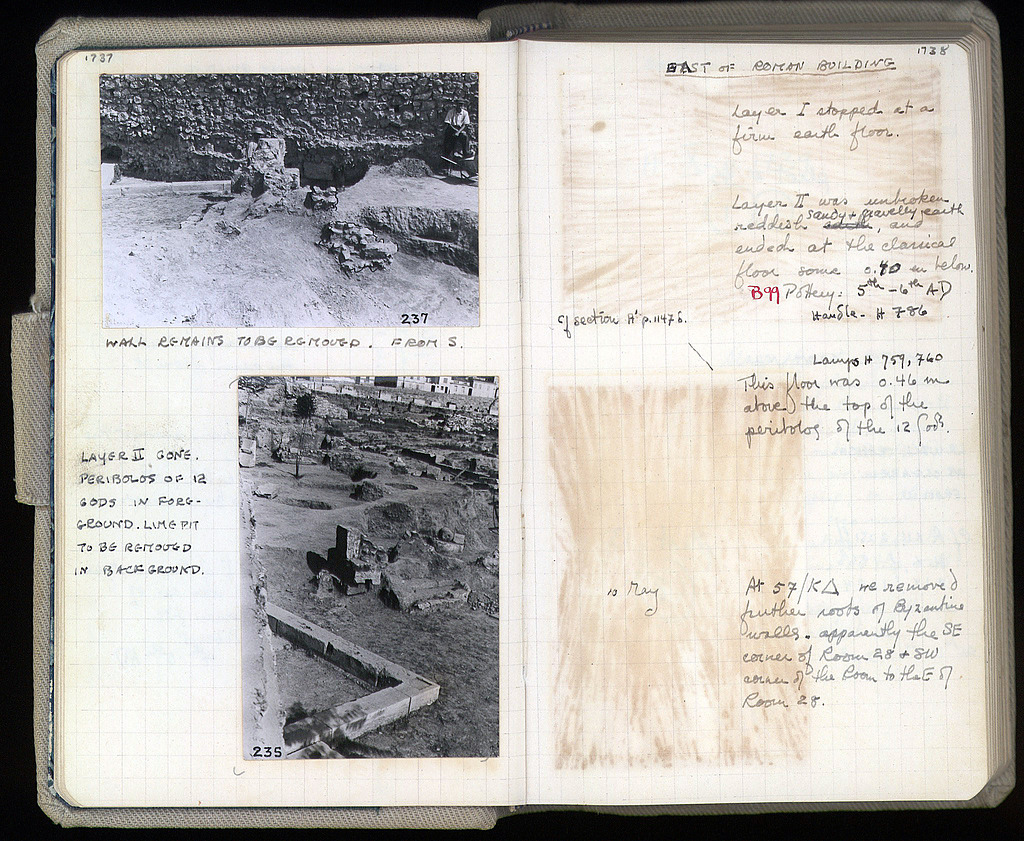 1737
237
WALL REMAINS TO BE REMOVED. FROM S.
LAYER II GONE.
PERIBOLOS OF 12
GODS IN FORE-
GROUND. LIME PIT
TO BE REMOVED
IN BACKGROUND.
235
1738
EAST OF ROMAN BUILDING
Layer I stopped at a
firm earth floor.
Layer II was unbroken
reddish sandy + gravelly earth, and
ended at the classical
floor some 0.70 m below.
B99 Pottery: 5th - 6th AD
Handle - H 786
Cf section H' p. 1147 b.
Lamps H 759, 760
This floor was 0.46 m
above the top of the
peribolos of the 12 Gods.
10 May
At 57/ΚΔ we removed
further roots of Byzantine
walls. apparently the SE
corner of Room 28 + SW
corner of the Room to the E of
Room 28.